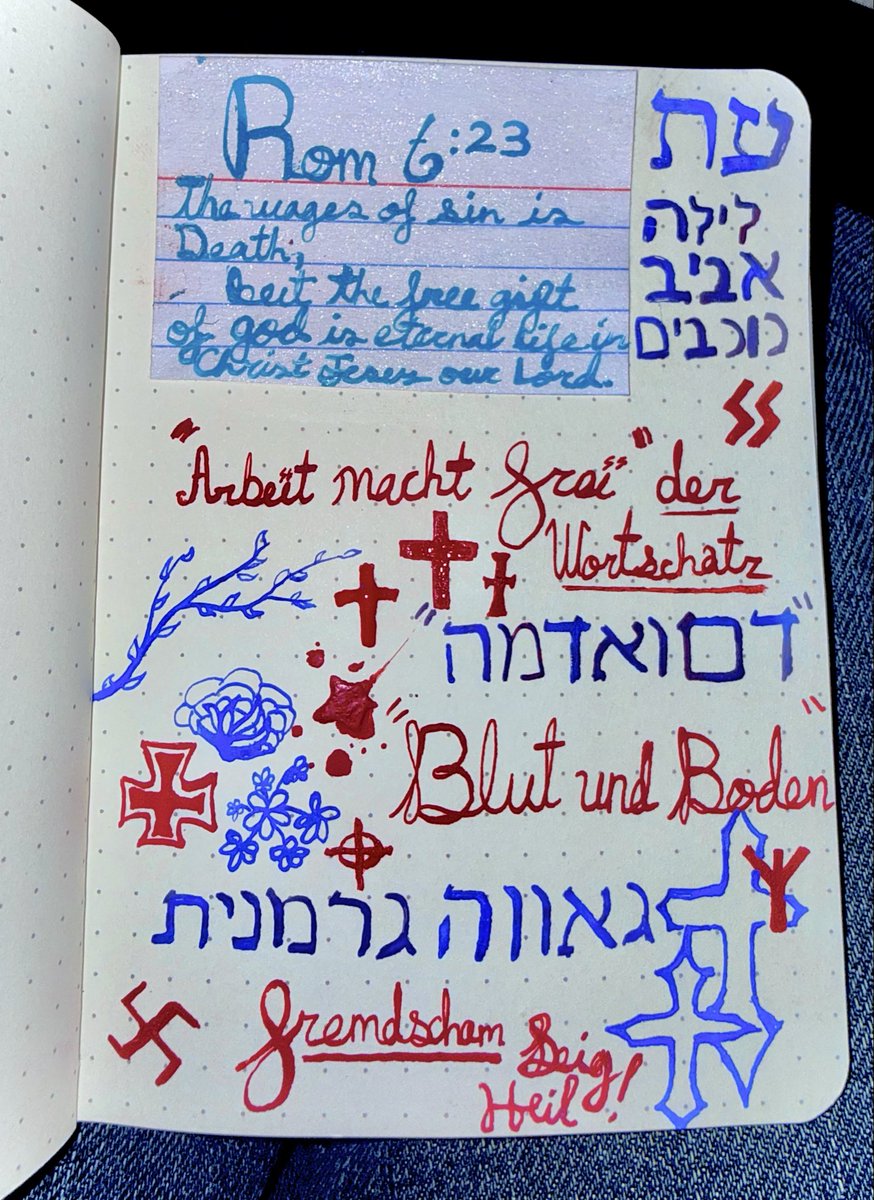 Rom 6:23
The wages of sin is
Death;
but the free gift
of god is eternal life in
Christ Jesus our Lord.
עת
לילה
אביב
כוכבים
SS
"Arbeit macht frei" der
Wortschatz
"דם ואדמה"
"Blut und Boden"
גאווה גרמנית
fremdscham Seig
Heil!